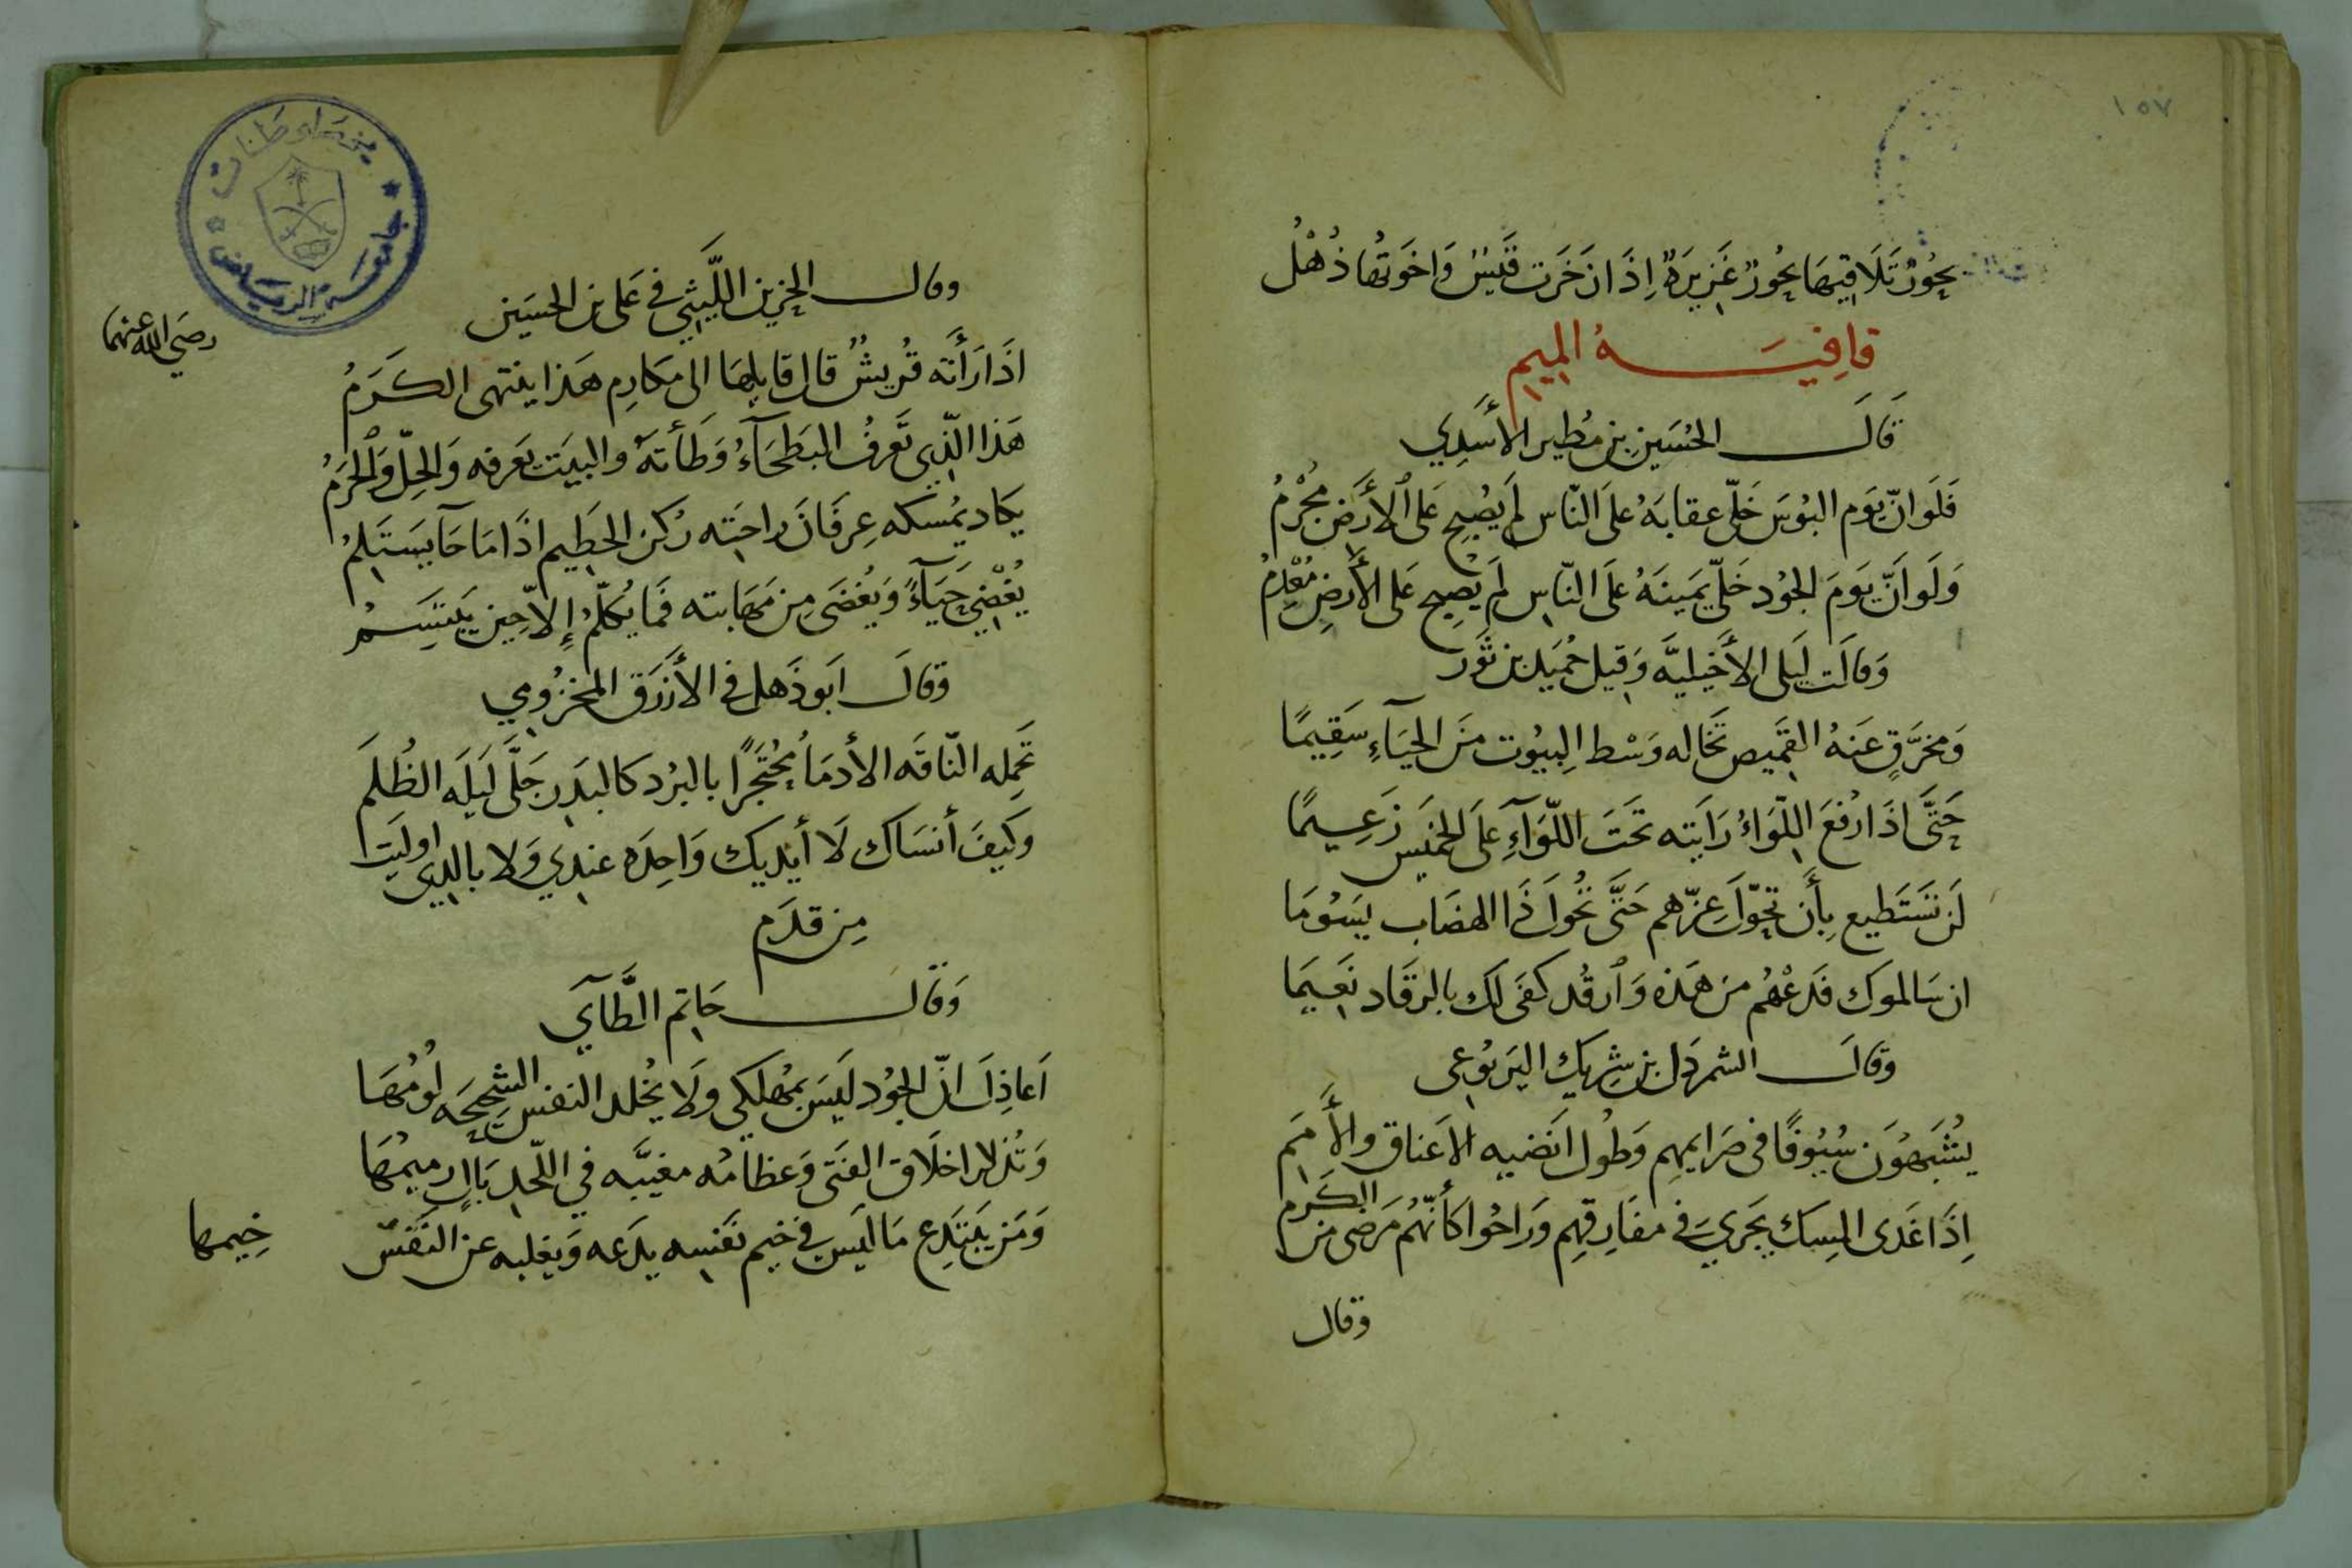 ١٥٧
بحُورٌ تَلَاقِيهَا بحُورٌ غَزِيرَةٌ إِذَا زَخَرَت قَيْسٌ وَاخَوتُها ذُهْلُ
قافِيَــةُ الميم
قَالَ الحُسَين بن مُطير الأَسَدِي
فَلَو انّ يَوم البُوسَ خَلّى عقابَهُ عَلَى النّاس لم يُصْبح عَلَى الأرَض مُجْرمُ
وَلَو أَنّ يَومَ الجُود خَلّى يَمينَهُ عَلَى النّاس لَم يُصْبح عَلى الأَرضِ مُعْدِمُ
وَقالَت لَيلى الأَخيليَّه وَقيل حُمَيد بن ثَور
وَمخرَّقٍ عَنهُ القَميص تَخَاله وَسْط البيُوت منَ الحَيَآءِ سَقِيمًا
حَتَّى اذَا رُفعَ اللّوَاءُ رَايَته تَحَتَ اللّوَآءِ عَلَى الخَميَس زَعِيمًا
لَن تَستَطيع بِأَن تحَوّلَ عِزّهم حَتَّى تُحَولَ ذَا الهضَاب يسَوُمَا
ان سَالموكَ فَدَعْهُم من هَذه وَارقُد كفَى لَكَ بالرقَاد نعَيمَا
وَقَالَ الشمردَل بن شريك اليَربوُعى
يُشَبَهُونَ سُيُوفًا فى صَرايمِهِم وَطُول انَضيه الاَعناق والأَمَم
إِذَا غَدى المِسكَ يَجَري فى مفَارِقهِم وَرَاحُوا كأَنَّهُم مَرَضى من الكَرم
وَقال
وقال الحزين اللَّيثي في عَلى بن الحسَين
رضَي الله عنهما
اذَا رَأَته قُريشٌ قال قايلهَا الى مكَارِم هَذا ينتهى الكَرَمُ
هَذا الّذي تَعرفُ البَطحَآءُ وَطَأتَهُ والبيَت يَعَرفه وَالحِلّ وَالحَرَمُ
يَكَاد يمُسكه عِرفَانَ رَاحَته رُكن الحَطِيم اذَا مَا جَآ يسَتَلمُ
يُغْضي حَيَآءً وَيُغضَى مِن مَهَابته فَمَا يُكلّمُ إِلاّ حِين يَبَتَسِـمُ
وَقالَ ابَو دَهبل فى الأَزرَق المخزُومي
تَحمِله النّاقَه الأدمَاُ محُتَجَرًا بالبرُد كالبَدِر جَلَّى لَيلَه الظُلَمَ
وَكَيفَ أنسَاك لَا أيديك وَاحِدَه عندِي وَلا بالدى اوليَت
مِن قِدَم
وَقَالَ حَاتم الطَّآي
اَعاذِلَ انّ الجُود لَيسَ بمُهلكى وَلَا يُخلد النفس الشحِيحَه لؤمُهَا
وَتُذكر اخلَاق الفتَى وَعظامُه مغيَبَه في اللّحدِ بَالٍ رميمُهَا
وَمَن يَبتَدِع مَا لَيس في خيم نَفسِه يدَعه وَيغلبه عن النَفَس
خِيمها
جامعة الرياض